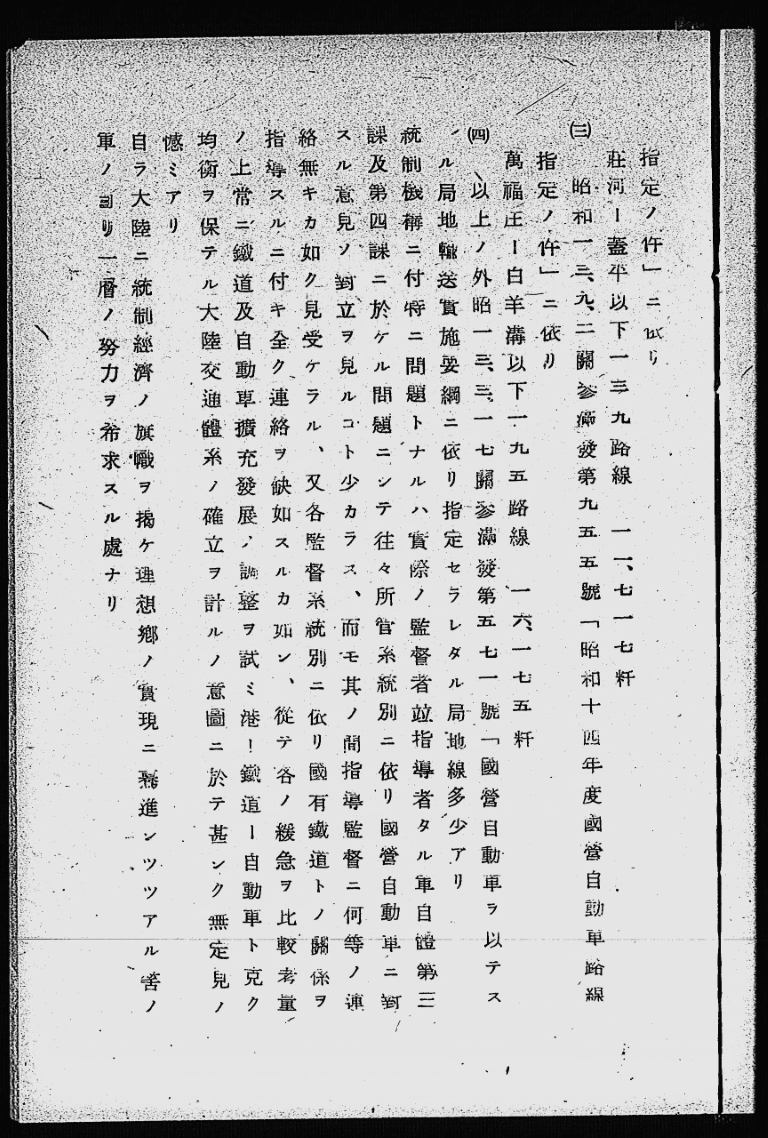 指定ノ件」ニ依リ
莊河ー蓋平以下一三九路線　一一、七一七粁
㈢　昭和一三、九、二關參滿發第九五五號「昭和十四年度國營自動車路線
指定ノ件」ニ依リ
萬福庄ー白羊溝以下一九五路線　一六、一七五粁
㈣　以上ノ外昭一三、三、一七關參滿發第五七一號「國營自動車ヲ以テス
ル局地輸送實施要綱ニ依リ指定セラレタル局地線多少アリ
統制機構ニ付特ニ問題トナルハ實際ノ監督者竝指導者タル軍自體第三
課及第四課ニ於ケル問題ニシテ往々所管系統別ニ依リ國營自動車ニ對
スル意見ノ對立ヲ見ルコト少カラス、而モ其ノ間指導監督ニ何等ノ連
絡無キカ如ク見受ケラル、又各監督系統別ニ依リ國有鐵道トノ關係ヲ
指導スルニ付キ全ク連絡ヲ缺如スルカ如シ、從テ各ノ緩急ヲ比較考量
ノ上常ニ鐵道及自動車擴充發展ノ調整ヲ試ミ港ー鐵道ー自動車ト克ク
均衡ヲ保テル大陸交通體系ノ確立ヲ計ルノ意圖ニ於テ甚シク無定見ノ
憾ミアリ
自ラ大陸ニ統制經濟ノ旗幟ヲ揭ケ理想鄕ノ實現ニ驀進シツツアル筈ノ
軍ノヨリ一層ノ努力ヲ希求スル處ナリ